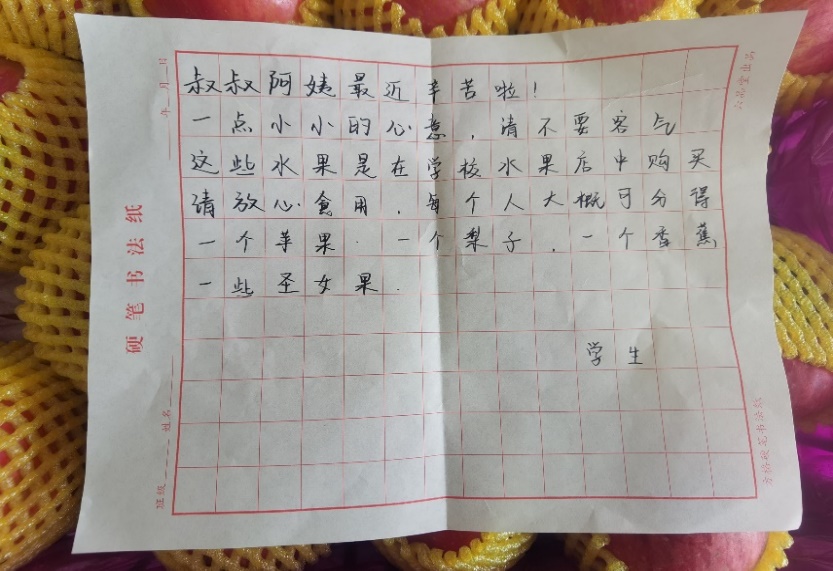 叔叔阿姨最近辛苦啦！
一点小小的心意，请不要客气
这些水果是在学校水果店中购买
请放心食用．每个人大概可分得
一个苹果．一个梨子．一个香蕉
一些圣女果．
学生
硬笔书法纸
年 月 日
班级 姓名